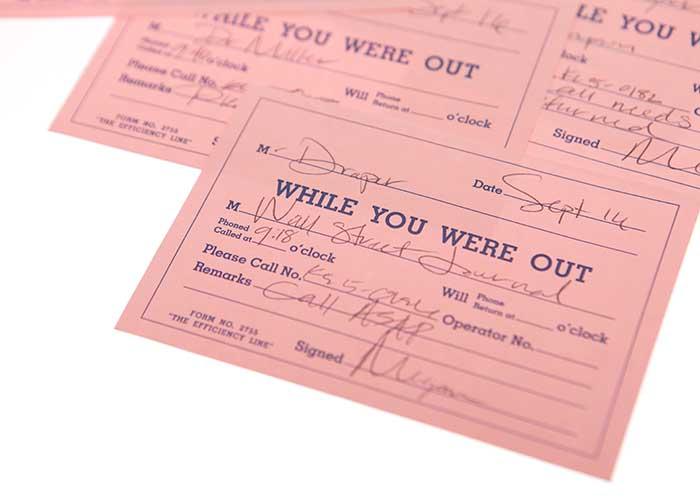 Sept 14
WHILE YOU WERE OUT
M Dr Miller
Phoned
Called at o'clock
Will Phone
Return at o'clock
Please Call No.
Remarks
FORM NO. 2755
"THE EFFICIENCY LINE"
WHILE YOU WERE
o'clock
call needs
returned
Signed
Mr Draper Date Sept 14
WHILE YOU WERE OUT
M Wall Street Journal
Phoned
Called at 9:18 o'clock
Will Phone
Return at o'clock
Please Call No. Operator No.
Remarks Call ASAP
FORM NO. 2755
"THE EFFICIENCY LINE"
Signed Megan